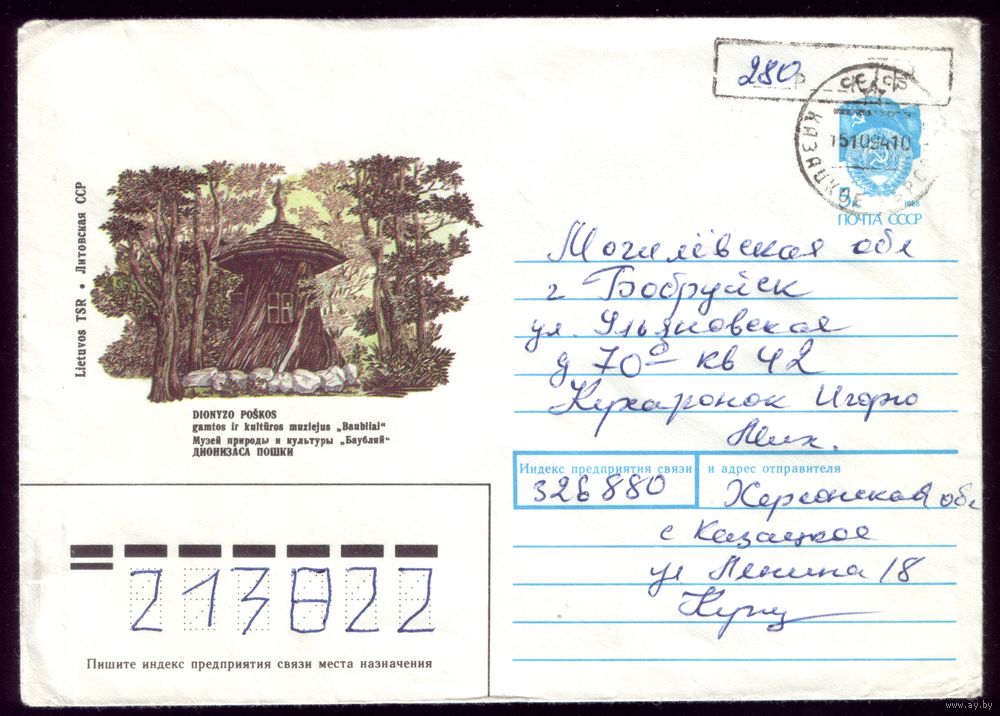 280 р
СССР
КАЗАЦКОЕ
15109410
5к 1988
ПОЧТА СССР
Lietuvos TSR • Литовская ССР
DIONYZO POŠKOS
gamtos ir kultūros muziejus „Baubliai“
Музей природы и культуры „Баубляй“
ДИОНИЗАСА ПОШКИ
Могилёвская обл
г Бобруйск
ул. Ульяновская
д 70б кв 42
Кухаронок Игорю
Мих.
Индекс предприятия связи и адрес отправителя
326880 Херсонская обл
с Казацкое
ул Ленина 18
213822
Пишите индекс предприятия связи места назначения
www.ay.by